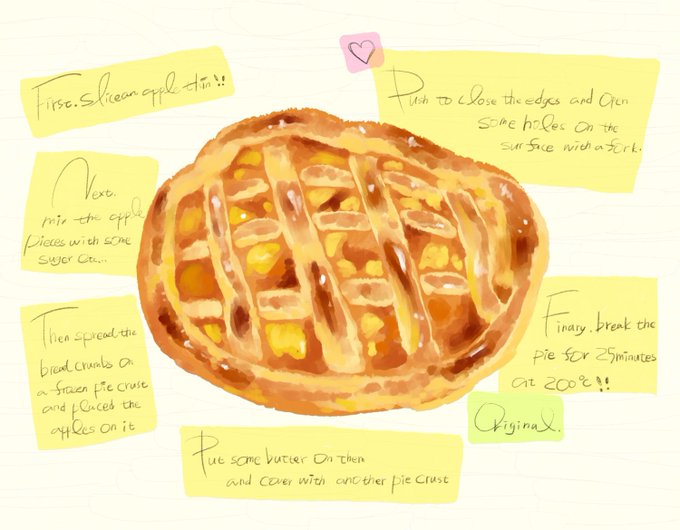 First. Slice an apple thin!!
Next.
mix the apple
pieces with some
suger etc...
Then spread the
bread crumbs on
a frozen pie crust
and placed the
apples on it
Put some butter on them
and cover with another pie crust
Push to close the edges and open
some holes on the
surface with a fork.
Finary. break the
pie for 25minutes
at 200℃!!
Original.